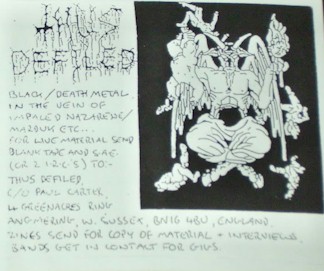 THUS
DEFILED
BLACK/DEATH METAL
IN THE VEIN OF
IMPALED NAZARENE/
MARDUK ETC...
FOR LIVE MATERIAL SEND
BLANK TAPE AND S.A.E.
(OR 2 I.R.C'S) TO:-
THUS DEFILED
C/O PAUL CARTER,
4 GREENACRES RING
ANGMERING, W. SUSSEX, BN16 4BU, ENGLAND.
ZINES SEND FOR COPY OF MATERIAL + INTERVIEWS.
BANDS GET IN CONTACT FOR GIGS.